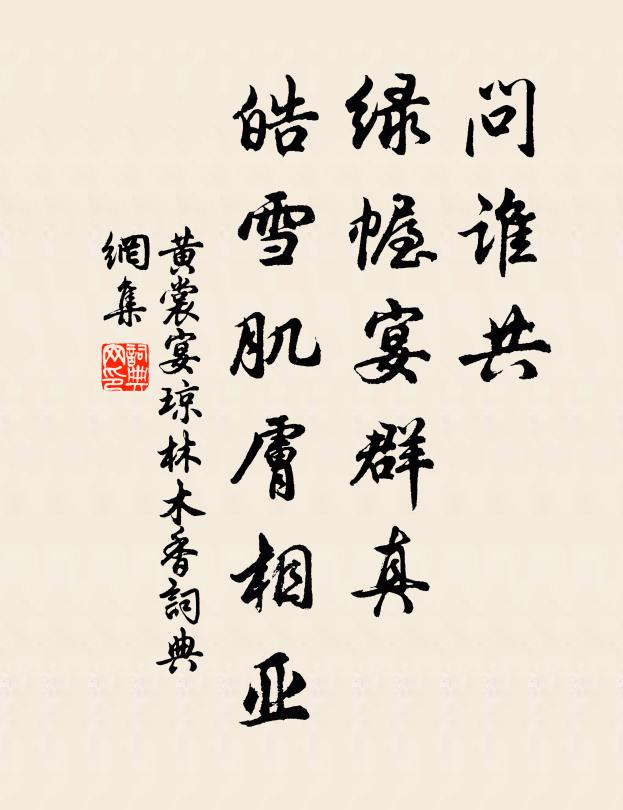 问谁共
绿幄宴群真
皓雪肌膚相亚
黄裳宴琼林木香詞典
網集
詞典网印